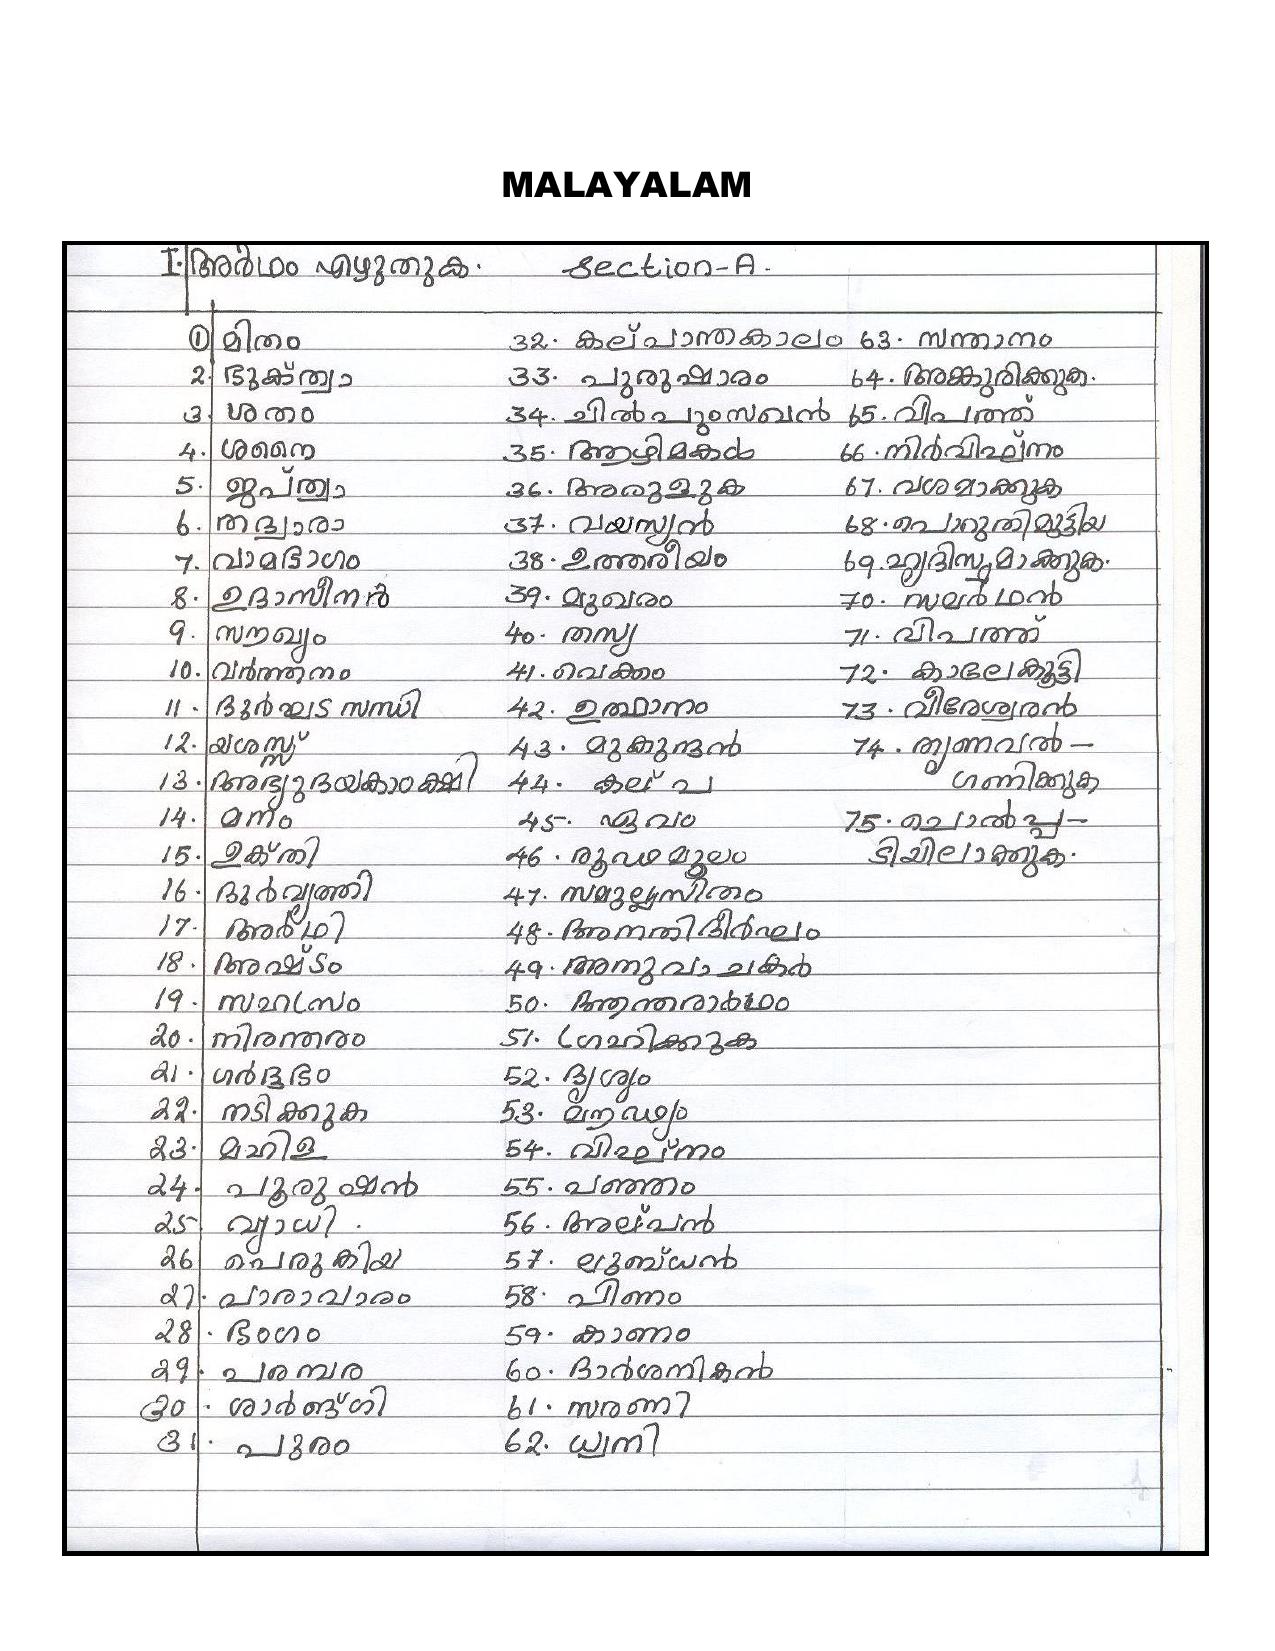 MALAYALAM
I. അർഥം എഴുതുക. Section-A.
1 മിതം
2. ഭുക്ത്വാ
3. ശതം
4. ശനൈ
5. ജപ്ത്വാ
6. തദ്വാരാ
7. വാമഭാഗം
8. ഉദാസീനൻ
9. സൗഖ്യം
10. വർത്തനം
11. ദുർഘട സന്ധി
12. യശസ്സ്
13. അഭ്യുദയകാംക്ഷി
14. മനം
15. ഉക്തി
16. ദുർവൃത്തി
17. അർഥി
18. അഷ്ടം
19. സഹസ്രം
20. നിരന്തരം
21. ഗർദ്ദഭം
22. നടിക്കുക
23. മഹിള
24. പൂരുഷൻ
25 വ്യാധി.
26 പെരുകിയ
27. പാരാവാരം
28. ഭംഗം
29. പരമ്പര
30. ശാർങ്ഗി
31. പുരം
32. കല്പാന്തകാലം
33. പുരുഷാരം
34. ചിൽപുംസഖൻ
35. ആഴിമകൾ
36. അരുളുക
37. വയസ്യൻ
38. ഉത്തരീയം
39. മുഖരം
40. തസ്യ
41. വെക്കം
42. ഉത്ഥാനം
43. മുകുന്ദൻ
44. കല്പ
45. ഏവം
46. രൂഢമൂലം
47. സമുല്ലസിതം
48. അനതിദീർഘം
49. അനുവാചകർ
50. ആന്തരാർഥം
51. ഗ്രഹിക്കുക
52. ദൃശ്യം
53. മൗഢ്യം
54. വിഘ്നം
55. പഞ്ഞം
56. അല്പൻ
57. ലുബ്ധൻ
58. പിണം
59. കാണം
60. ദാർശനികൻ
61. സരണി
62. ധ്വനി
63. സന്താനം
64. അങ്കുരിക്കുക.
65. വിപത്ത്
66. നിർവിഘ്നം
67. വശമാക്കുക
68. പൊറുതിമുട്ടിയ
69. ഹൃദിസ്ഥമാക്കുക.
70.
71. വിപത്ത്
72. കാലേകൂട്ടി
73. വീരേശ്വരൻ
74. തൃണവൽ-
ഗണിക്കുക
75. ചൊൽപ്പ-
ടിയിലാക്കുക.